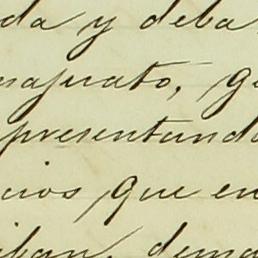 da y deba
majurato, ge
presentando
cios que en
iban, dema